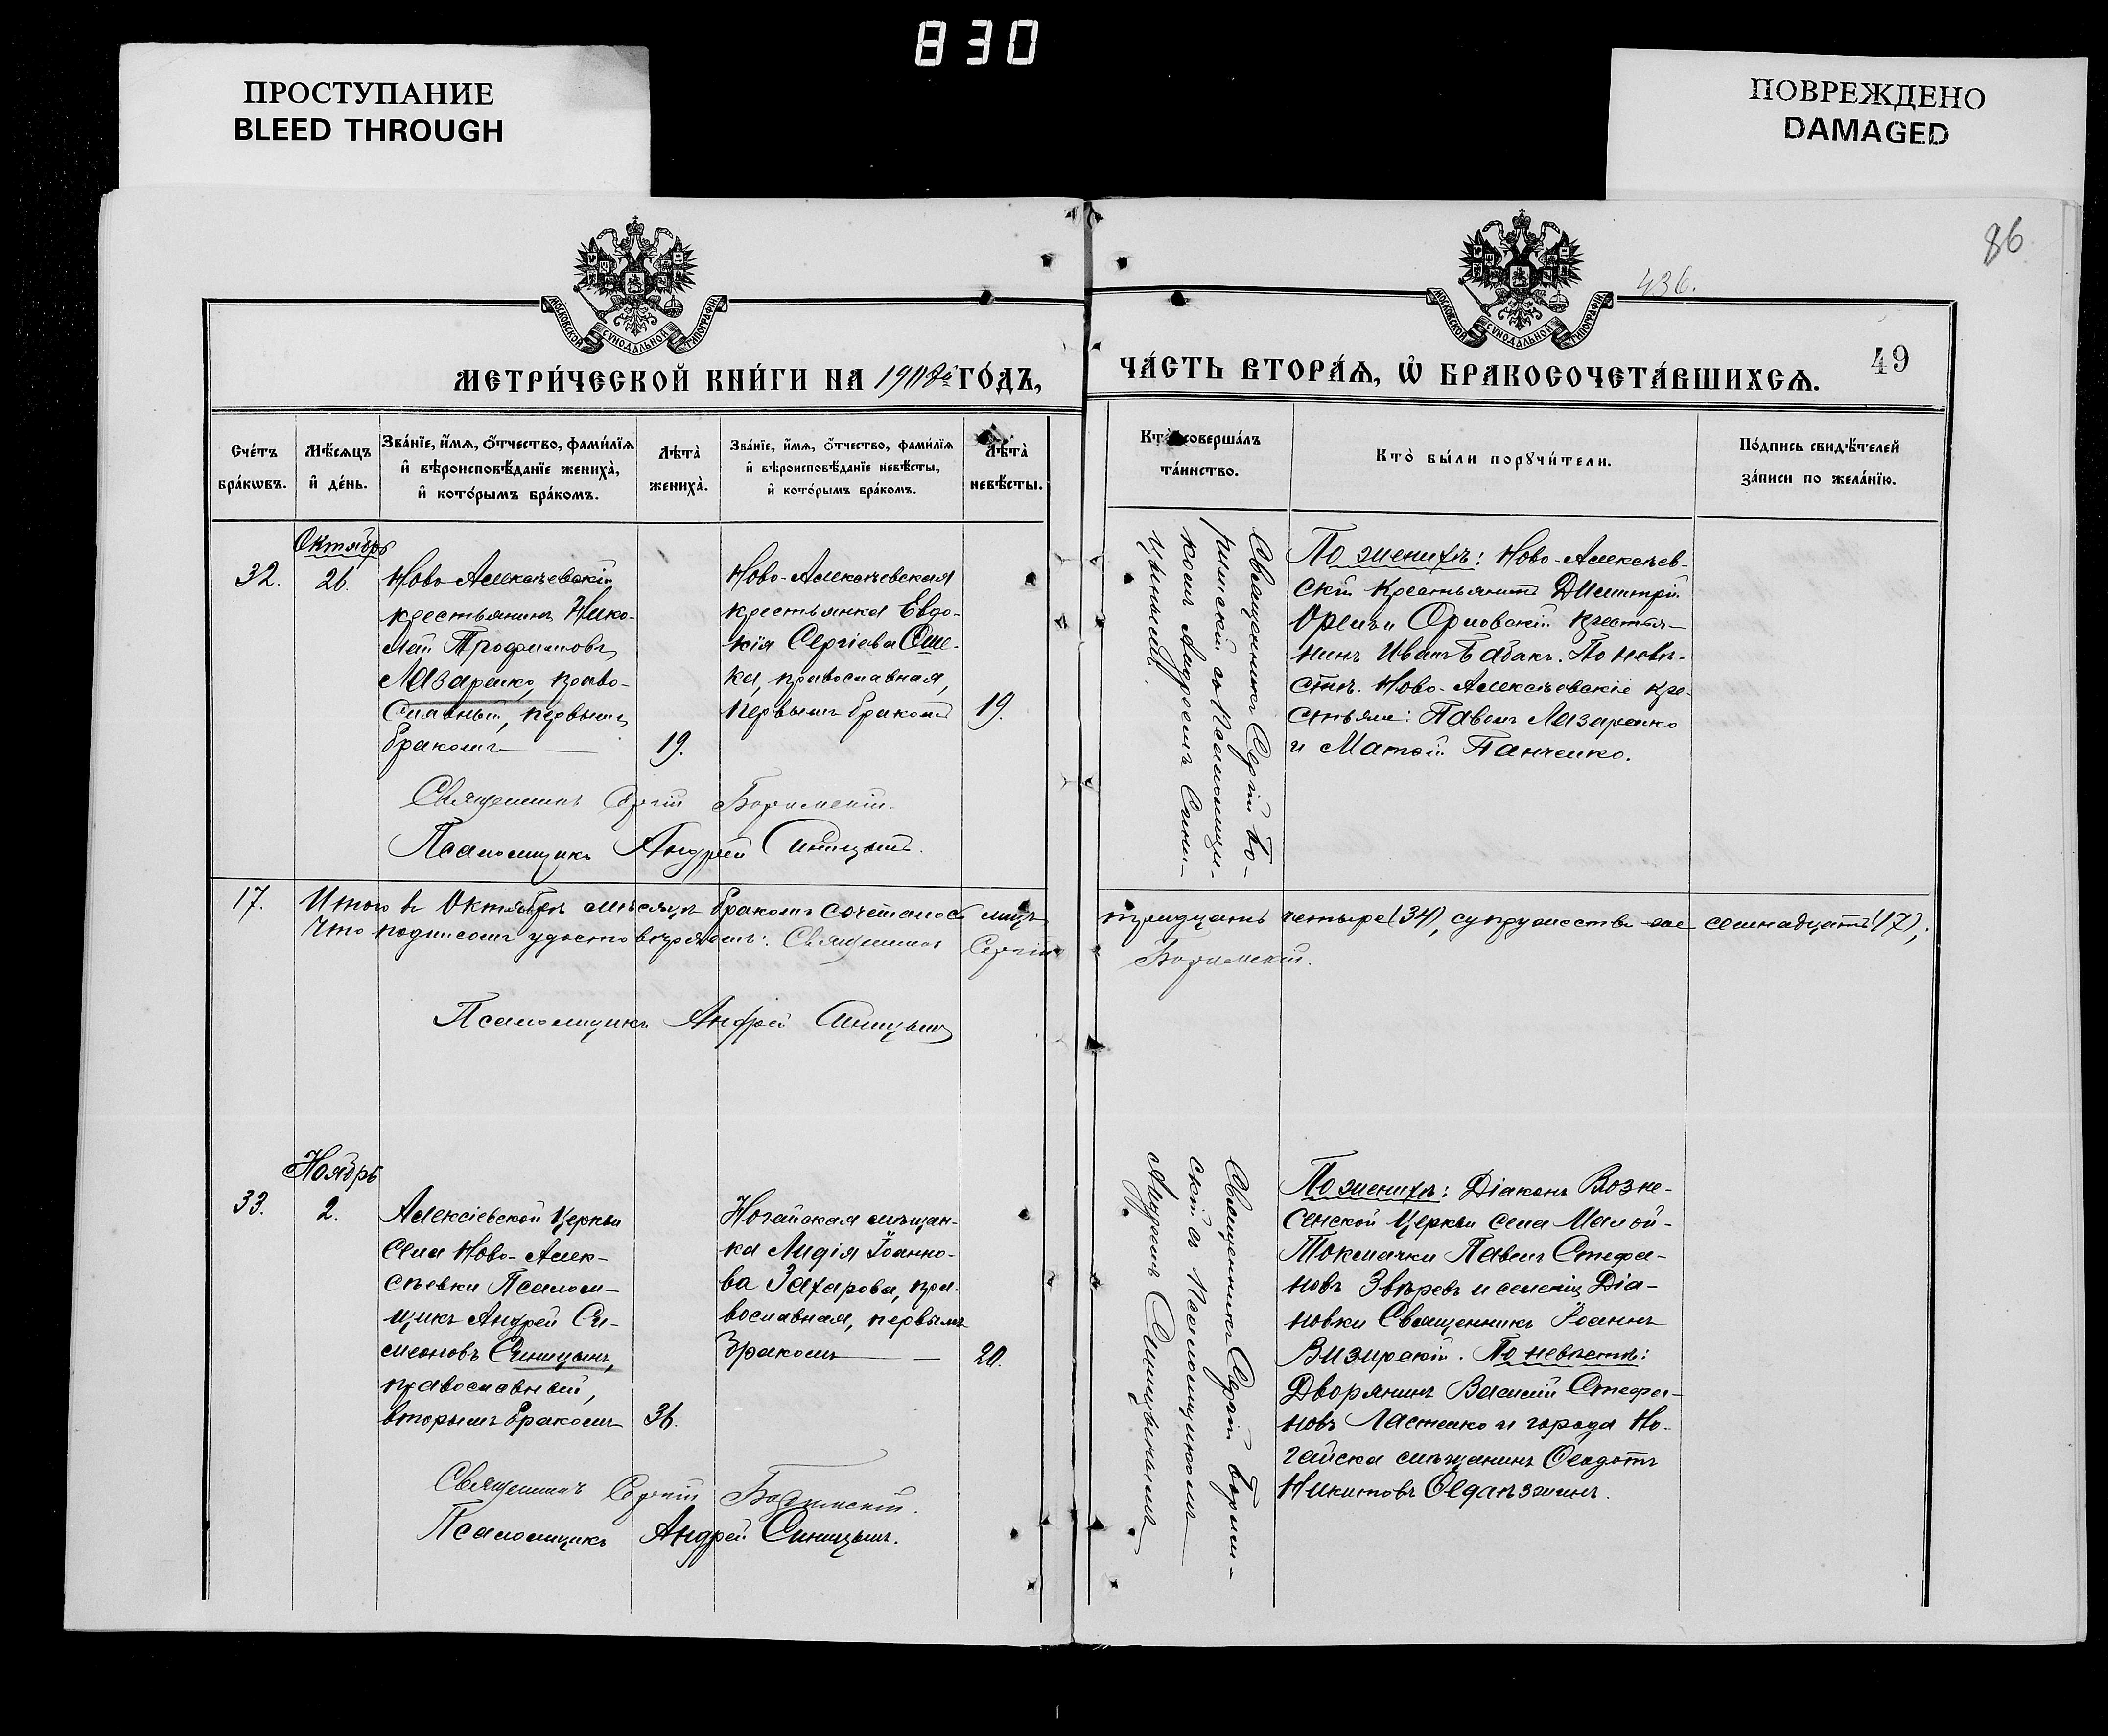 830
ПРОСТУПАНИЕ
BLEED THROUGH
ПОВРЕЖДЕНО
DAMAGED
86
436.
МОСКОВСКОЙ СѴНОДАЛЬНОЙ ТИПОГРАФІИ
МОСКОВСКОЙ СѴНОДАЛЬНОЙ ТИПОГРАФІИ
МЕТРИ́ЧЕСКОЙ КНИ́ГИ НА 1911й ГО́ДЪ,
ЧА́СТЬ ВТОРА́Ѧ, Ѽ БРАКОСОЧЕТА́ВШИХСѦ.
49
Сче́тъ бра́кѡвъ.
Мѣ́сѧцъ и҆ де́нь.
Зва́нїе, и҆́мѧ, ѻ҆́тчество, фами́лїѧ
и҆ вѣроисповѣ́данїе жениха̀,
и҆ кото́рымъ бра́комъ.
Лѣта̀ жениха̀.
Зва́нїе, и҆́мѧ, ѻ҆́тчество, фами́лїѧ
и҆ вѣроисповѣ́данїе невѣ́сты,
и҆ кото́рымъ бра́комъ.
Лѣта̀ невѣ́сты.
Кто̀ соверша́лъ
та́инство.
Кто̀ бы́ли порꙋчи́тели.
По́дпись свидѣ́телей
за́писи по жела́нїю.
Октябрь
32.
26.
Ново-Алексѣевскій
крестьянинъ Нико-
лай Трофимовъ
Лазаренко, право-
славный, первымъ
бракомъ
19.
Ново-Алексѣевская
крестьянка Евдо-
кія Сергіева
ка, православная,
первымъ бракомъ
19.
Священникъ Сергій Бо-
римскій съ Псаломщи-
комъ Андреемъ Сини-
цынымъ.
По женихѣ: Ново-Алексѣев-
скій крестьянинъ Дмитрій
Орловскій крестья-
нинъ Иванъ Бабакъ. По невѣ-
стѣ. Ново-Алексѣевскіе кре-
стьяне: Павелъ Лазаренко
и Матѳій Панченко.
Священникъ Сергій Боримскій.
Псаломщикъ Андрей Синицынъ.
17.
Итого въ Октябрѣ мѣсяцѣ бракомъ сочеталось лицъ тридцать четыре (34), супружествъ же семнадцать (17),
Что подписомъ удостовѣряемъ: Священникъ Сергій Боримскій.
Псаломщикъ Андрей Синицынъ
Ноябрь
33.
2.
Алексіевской Церкви
села Ново-Алек-
сѣевки Псалом-
щикъ Андрей Си-
меоновъ Синицынъ,
православный,
вторымъ бракомъ
36.
Ногайская мѣщан-
ка Лидія Іоанно-
ва Захарова, пра-
вославная, первымъ
бракомъ
20.
Священникъ Сергій Борим-
скій съ Псаломщикомъ
Андреемъ Синицынымъ
По женихѣ: Діаконъ Возне-
сенской Церкви села Малой-
Токмачки Павелъ Стефа-
новъ Звѣревъ и селенія Діа-
новки Священникъ Іоаннъ
Визирскій. По невѣстѣ:
Дворянинъ Василій Стефа-
новъ Ластенко и города Но-
гайска мѣщанинъ Ѳеодотъ
Никитовъ
Священникъ Сергій Боримскій.
Псаломщикъ Андрей Синицынъ.